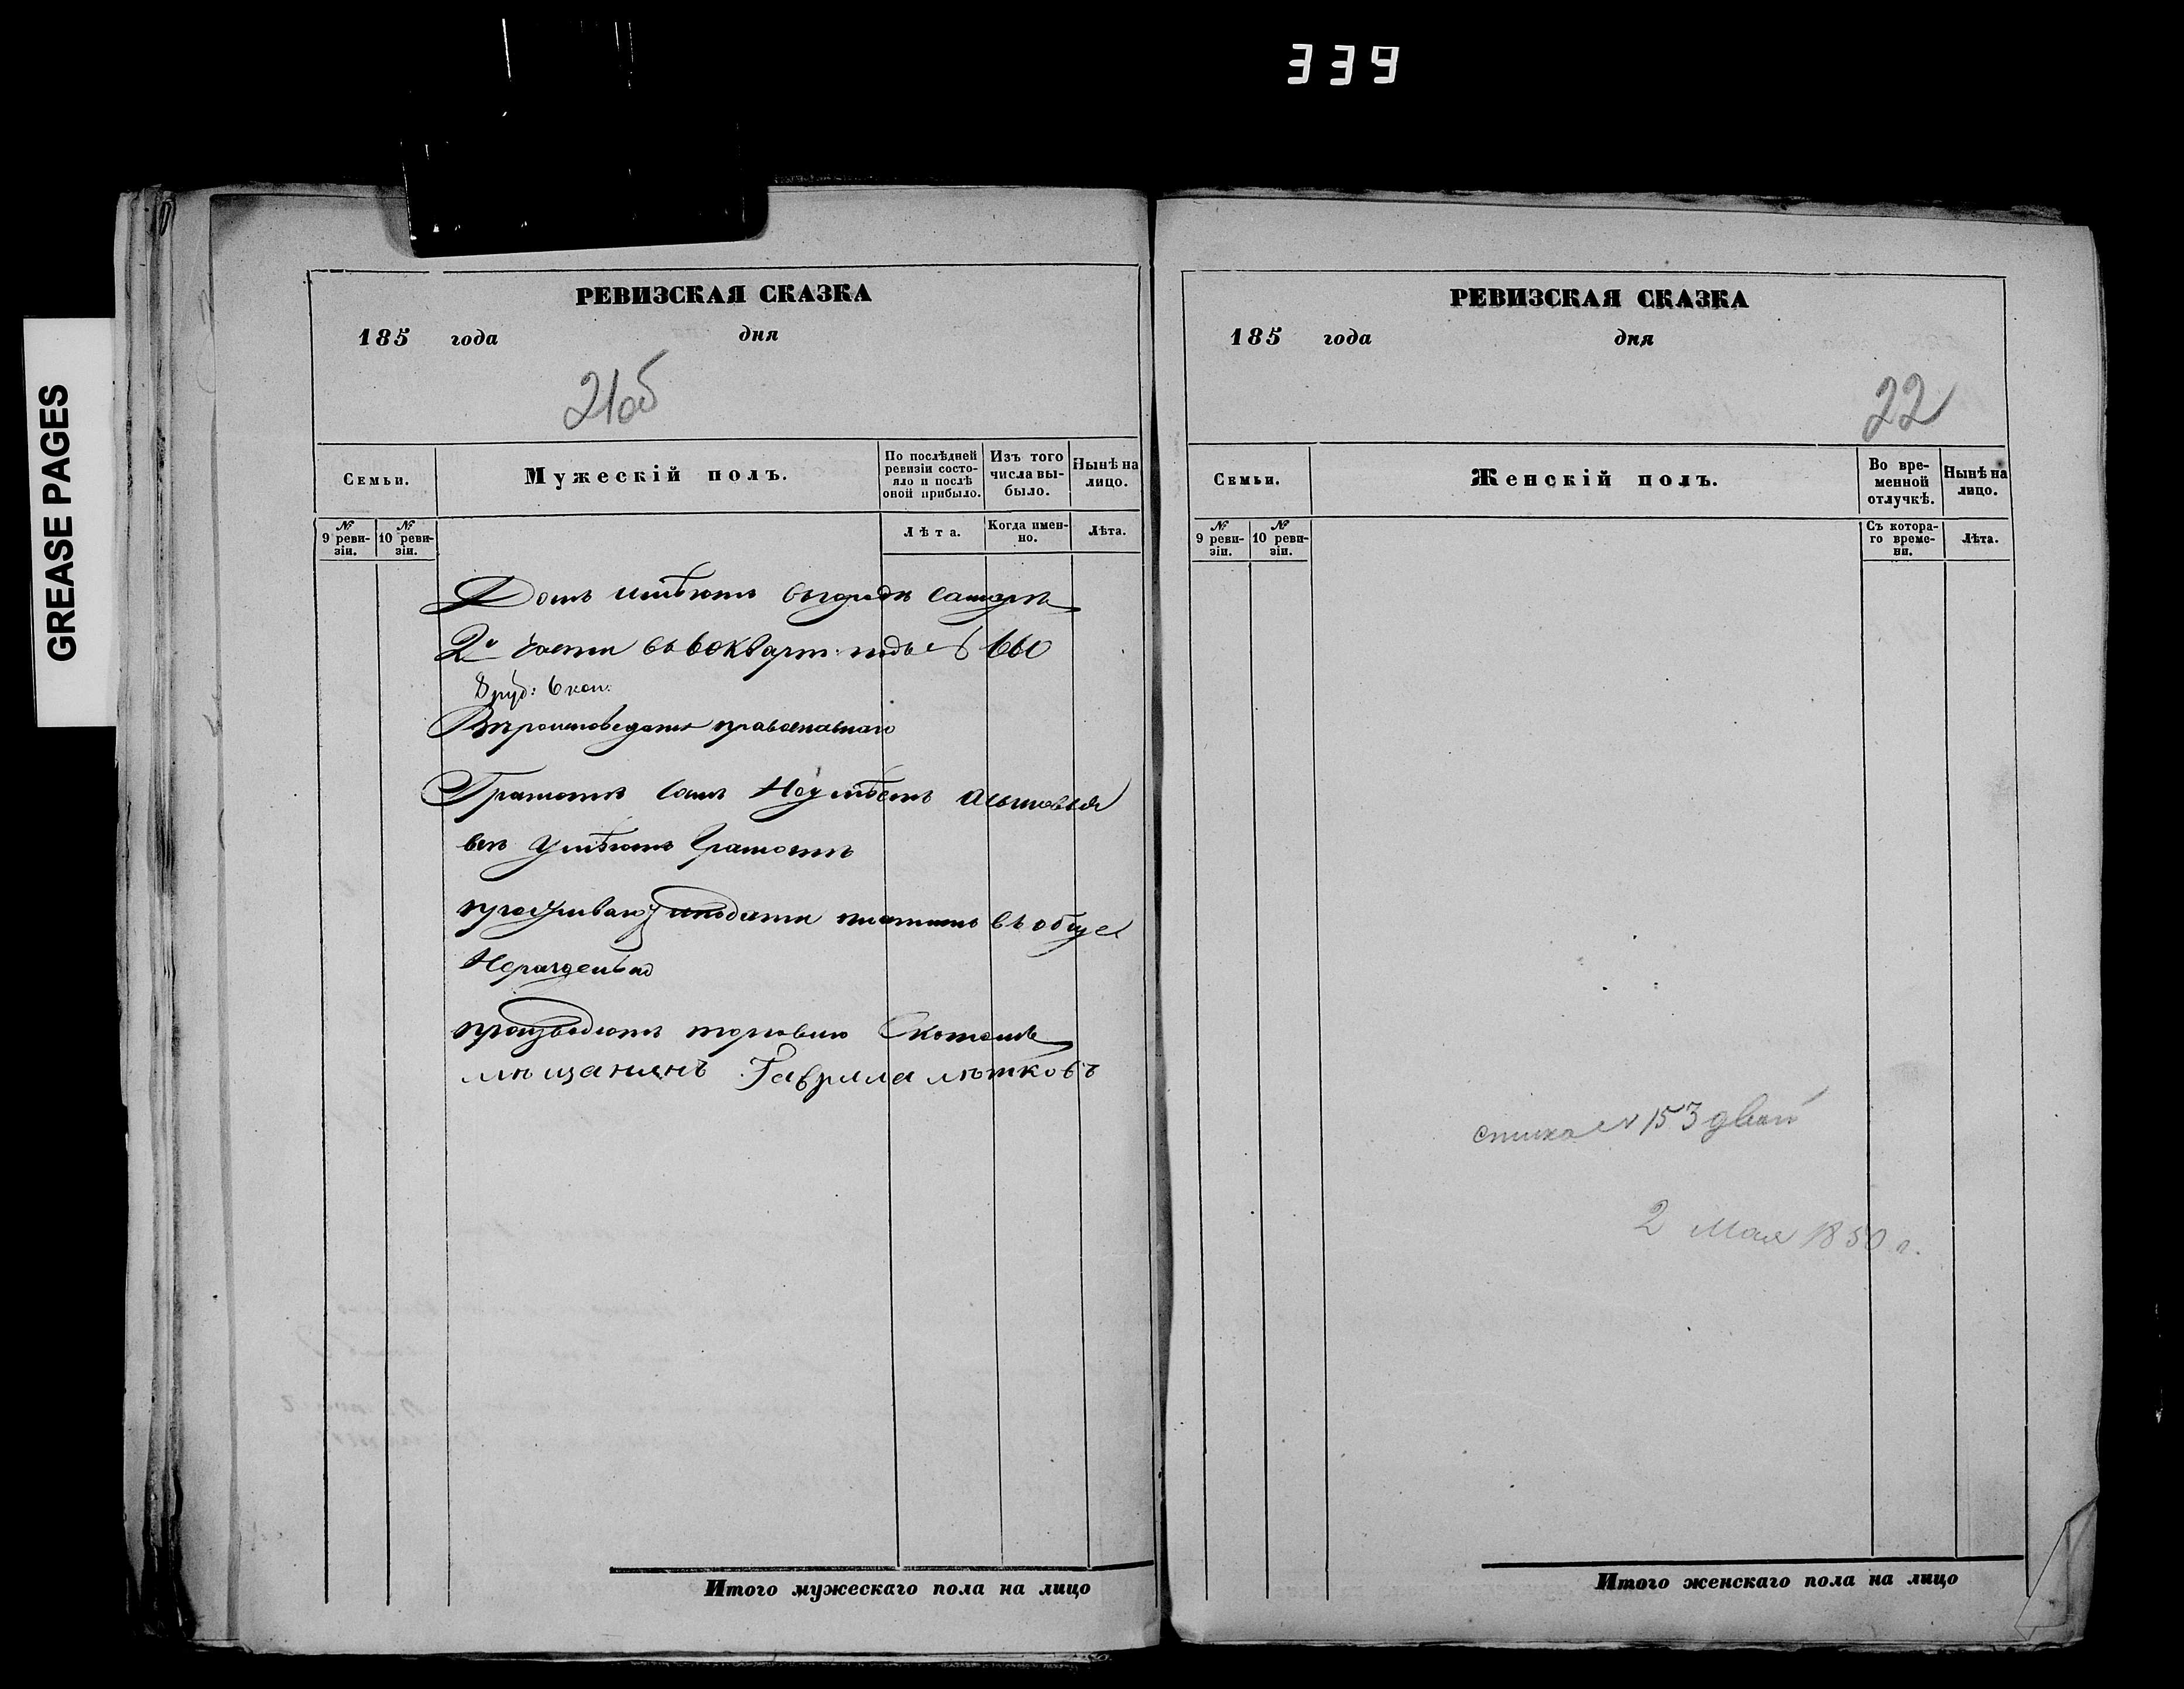 339
GREASE PAGES
РЕВИЗСКАЯ СКАЗКА
185 года дня
21об
Семьи.
Мужескій полъ.
По послѣдней ревизіи состояло и послѣ оной прибыло.
Изъ того числа выбыло.
Нынѣ на лицо.
№ 9 ревизіи.
№ 10 ревизіи.
Лѣта.
Когда именно.
Лѣта.
Домъ имѣютъ въ городѣ Самарѣ
2й части въ 6 кварт: подъ № 660
8 руб: 6 коп:
Вѣроисповеданія православнаго
Грамотѣ самъ Неумѣетъ а сыновья
всѣ умѣютъ Грамотѣ
подати платитъ въ обще
Нераздельно
производютъ торговлю Скотомъ
мѣщанинъ Гаврила
Итого мужескаго пола на лицо
РЕВИЗСКАЯ СКАЗКА
185 года дня
22
Семьи.
Женскій полъ.
Во временной отлучкѣ.
Нынѣ на лицо.
№ 9 ревизіи.
№ 10 ревизіи.
Съ котораго времени.
Лѣта.
№ 153
2 Мая 1850 г.
Итого женскаго пола на лицо